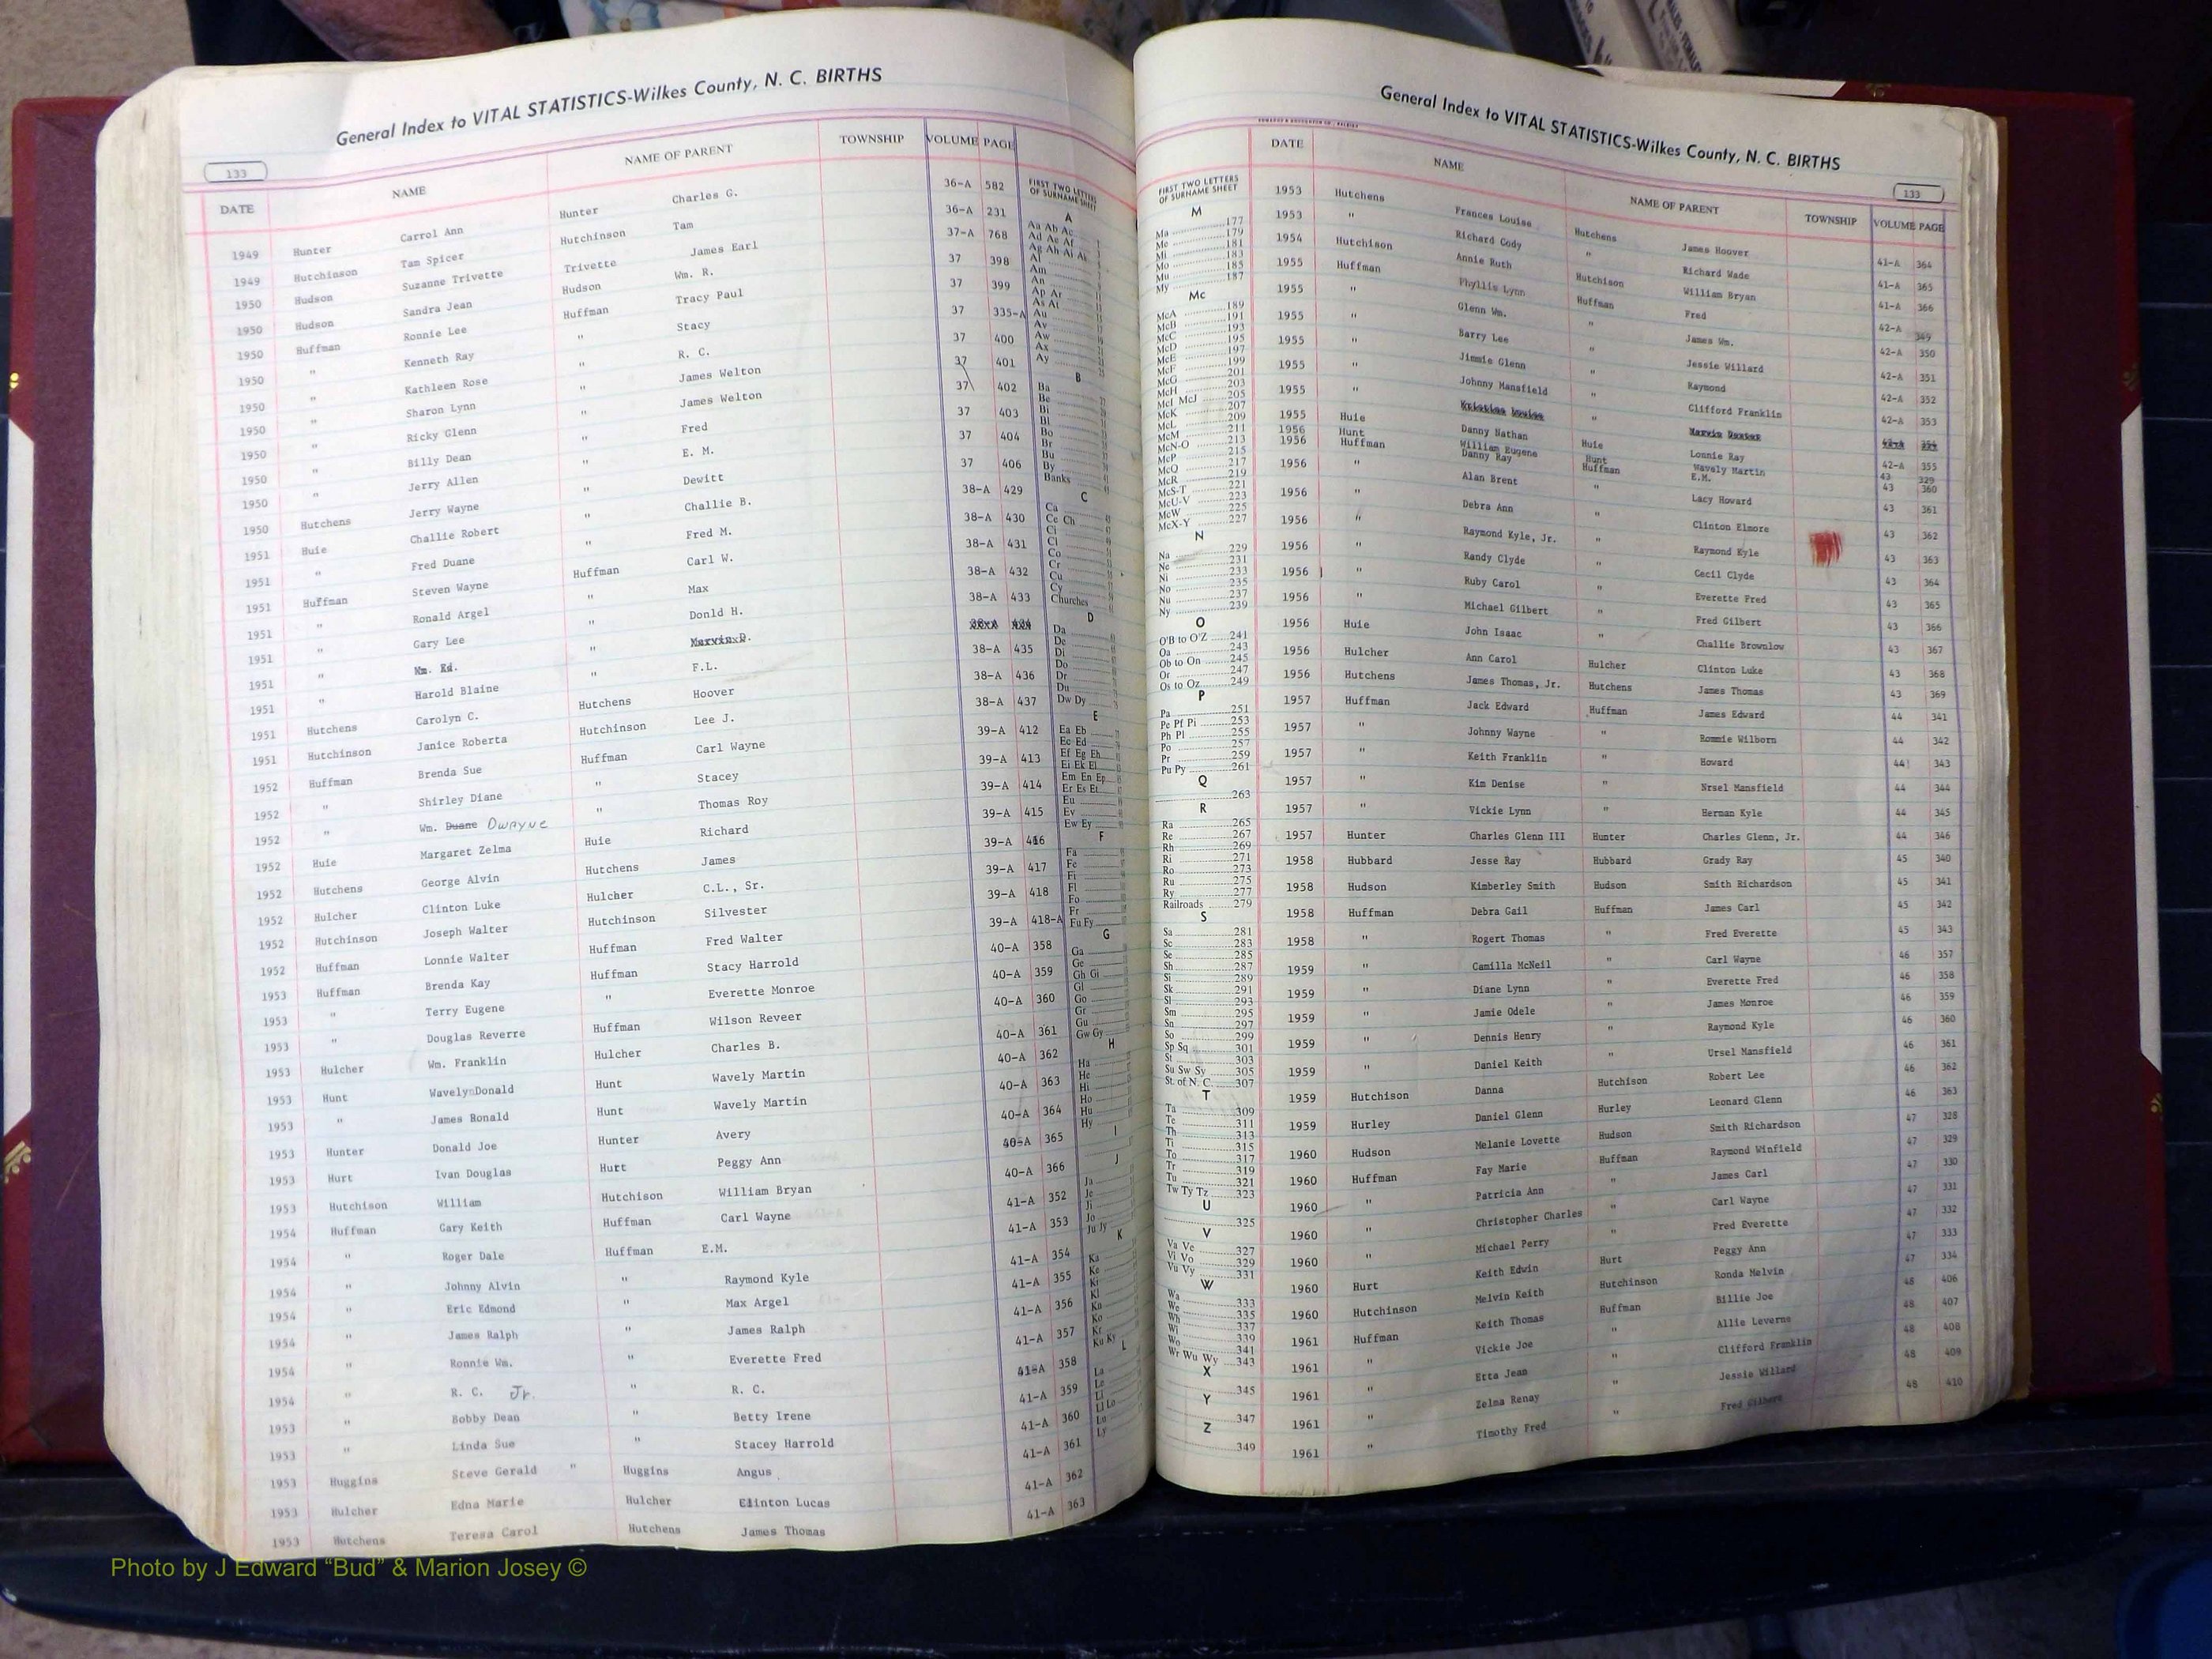 General Index to VITAL STATISTICS-Wilkes County, N. C. BIRTHS
133
DATE NAME NAME OF PARENT TOWNSHIP VOLUME PAGE
1949 Hunter Carrol Ann Hunter Charles G. 36-A 582
1949 Hutchinson Tam Spicer Hutchinson Tam 36-A 231
1950 Hudson Suzanne Trivette Trivette James Earl 37-A 768
1950 Hudson Sandra Jean Hudson Wm. R. 37 398
1950 Huffman Ronnie Lee Huffman Tracy Paul 37 399
1950 " Kenneth Ray " Stacy 37 335-A
1950 " Kathleen Rose " R. C. 37 400
1950 " Sharon Lynn " James Welton 37 401
1950 " Ricky Glenn " James Welton 37 402
1950 " Billy Dean " Fred 37 403
1950 " Jerry Allen " E. M. 37 404
1950 Hutchens Jerry Wayne " Dewitt 37 406
1951 Huie Challie Robert " Challie B. 38-A 429
1951 " Fred Duane " Fred M. 38-A 430
1951 Huffman Steven Wayne Huffman Carl W. 38-A 431
1951 " Ronald Argel " Max 38-A 432
1951 " Gary Lee " Donld H. 38-A 433
1951 " Wm. Ed. "
1951 " Harold Blaine " F.L. 38-A 435
1951 Hutchens Carolyn C. Hutchens Hoover 38-A 436
1951 Hutchinson Janice Roberta Hutchinson Lee J. 38-A 437
1952 Huffman Brenda Sue Huffman Carl Wayne 39-A 412
1952 " Shirley Diane " Stacey 39-A 413
1952 " Wm. Duane Dwayne " Thomas Roy 39-A 414
1952 Huie Margaret Zelma Huie Richard 39-A 415
1952 Hutchens George Alvin Hutchens James 39-A 416
1952 Hulcher Clinton Luke Hulcher C.L., Sr. 39-A 417
1952 Hutchinson Joseph Walter Hutchinson Silvester 39-A 418
1952 Huffman Lonnie Walter Huffman Fred Walter 39-A 418-A
1953 Huffman Brenda Kay Huffman Stacy Harrold 40-A 358
1953 " Terry Eugene " Everette Monroe 40-A 359
1953 " Douglas Reverre Huffman Wilson Reveer 40-A 360
1953 Hulcher Wm. Franklin Hulcher Charles B. 40-A 361
1953 Hunt Wavely Donald Hunt Wavely Martin 40-A 362
1953 " James Ronald Hunt Wavely Martin 40-A 363
1953 Hunter Donald Joe Hunter Avery 40-A 364
1953 Hurt Ivan Douglas Hurt Peggy Ann 40-A 365
1953 Hutchison William Hutchison William Bryan 40-A 366
1954 Huffman Gary Keith Huffman Carl Wayne 41-A 352
1954 " Roger Dale Huffman E.M. 41-A 353
1954 " Johnny Alvin " Raymond Kyle 41-A 354
1954 " Eric Edmond " Max Argel 41-A 355
1954 " James Ralph " James Ralph 41-A 356
1954 " Ronnie Wm. " Everette Fred 41-A 357
1954 " R. C. Jr. " R. C. 41-A 358
1953 " Bobby Dean " Betty Irene 41-A 359
1953 " Linda Sue " Stacey Harrold 41-A 360
1953 Huggins Steve Gerald " Huggins Angus 41-A 361
1953 Hulcher Edna Marie Hulcher Clinton Lucas 41-A 362
1953 Hutchens Teresa Carol Hutchens James Thomas 41-A 363
FIRST TWO LETTERS
OF SURNAME SHEET
A
Aa Ab Ac
Ad Ae Af
Ag Ah Ai Ak
Al
Am
An
Ap Ar
As At
Au
Av
Aw
Ax
Ay
B
Ba
Be
Bi
Bl
Bo
Br
Bu
By
Banks
C
Ca
Ce Ch
Ci
Cl
Co
Cr
Cu
Cy
Churches
D
Da
De
Di
Do
Dr
Du
Dw Dy
E
Ea Eb
Ec Ed
Ef Eg Eh
Ei Ek El
Em En Ep
Er Es Et
Eu
Ev
Ew Ey
F
Fa
Fe
Fi
Fl
Fo
Fr
Fu Fy
G
Ga
Ge
Gh Gi
Gl
Go
Gr
Gu
Gw Gy
H
Ha
He
Hi
Ho
Hu
Hy
I
J
Ja
Je
Ji
Jo
Ju Jy
K
Ka
Ke
Ki
Kl
Kn
Ko
Kr
Ku Ky
L
La
Le
Li
Ll Lo
Lu
Ly
FIRST TWO LETTERS
OF SURNAME SHEET
M
Ma 177
Me 179
Mi 181
Mo 183
Mu 185
My 187
Mc
McA 189
McB 191
McC 193
McD 195
McE 197
McF 199
McG 201
McH 203
McI McJ 205
McK 207
McL 209
McM 211
McN-O 213
McP 215
McQ 217
McR 219
McS-T 221
McU-V 223
McW 225
McX-Y 227
N
Na 229
Ne 231
Ni 233
No 235
Nu 237
Ny 239
O
O'B to O'Z 241
Oa 243
Ob to On 245
Or 247
Os to Oz 249
P
Pa 251
Pe Pf Pi 253
Ph Pl 255
Po 257
Pr 259
Pu Py 261
Q
263
R
Ra 265
Re 267
Rh 269
Ri 271
Ro 273
Ru 275
Ry 277
Railroads 279
S
Sa 281
Sc 283
Se 285
Sh 287
Si 289
Sk 291
Sl 293
Sm 295
Sn 297
So 299
Sp Sq 301
St 303
Su Sw Sy 305
St. of N. C. 307
T
Ta 309
Te 311
Th 313
Ti 315
To 317
Tr 319
Tu 321
Tw Ty Tz 323
U
325
V
Va Ve 327
Vi Vo 329
Vu Vy 331
W
Wa 333
We 335
Wh 337
Wi 339
Wo 341
Wr Wu Wy 343
X
345
Y
347
Z
349
General Index to VITAL STATISTICS-Wilkes County, N. C. BIRTHS
133
DATE NAME NAME OF PARENT TOWNSHIP VOLUME PAGE
1953 Hutchens Frances Louise Hutchens James Hoover 41-A 364
1953 " Richard Cody " Richard Wade 41-A 365
1954 Hutchison Annie Ruth Hutchison William Bryan 41-A 366
1955 Huffman Phyllis Lynn Huffman Fred 42-A 349
1955 " Glenn Wm. " James Wm. 42-A 350
1955 " Barry Lee " Jessie Willard 42-A 351
1955 " Jimmie Glenn " Raymond 42-A 352
1955 " Johnny Mansfield " Clifford Franklin 42-A 353
1955 " "
1955 Huie Danny Nathan Huie Lonnie Ray 42-A 355
1956 Hunt William Eugene Hunt Wavely Martin 43 329
1956 Huffman Danny Ray Huffman E.M. 43 360
1956 " Alan Brent " Lacy Howard 43 361
1956 " Debra Ann " Clinton Elmore 43 362
1956 " Raymond Kyle, Jr. " Raymond Kyle 43 363
1956 " Randy Clyde " Cecil Clyde 43 364
1956 " Ruby Carol " Everette Fred 43 365
1956 " Michael Gilbert " Fred Gilbert 43 366
1956 Huie John Isaac " Challie Brownlow 43 367
1956 Hulcher Ann Carol Hulcher Clinton Luke 43 368
1956 Hutchens James Thomas, Jr. Hutchens James Thomas 43 369
1957 Huffman Jack Edward Huffman James Edward 44 341
1957 " Johnny Wayne " Rommie Wilborn 44 342
1957 " Keith Franklin " Howard 44 343
1957 " Kim Denise " Nrsel Mansfield 44 344
1957 " Vickie Lynn " Herman Kyle 44 345
1957 Hunter Charles Glenn III Hunter Charles Glenn, Jr. 44 346
1958 Hubbard Jesse Ray Hubbard Grady Ray 45 340
1958 Hudson Kimberley Smith Hudson Smith Richardson 45 341
1958 Huffman Debra Gail Huffman James Carl 45 342
1958 " Rogert Thomas " Fred Everette 45 343
1959 " Camilla McNeil " Carl Wayne 46 357
1959 " Diane Lynn " Everette Fred 46 358
1959 " Jamie Odele " James Monroe 46 359
1959 " Dennis Henry " Raymond Kyle 46 360
1959 " Daniel Keith " Ursel Mansfield 46 361
1959 Hutchison Danna Hutchison Robert Lee 46 362
1959 Hurley Daniel Glenn Hurley Leonard Glenn 46 363
1960 Hudson Melanie Lovette Hudson Smith Richardson 47 328
1960 Huffman Fay Marie Huffman Raymond Winfield 47 329
1960 " Patricia Ann " James Carl 47 330
1960 " Christopher Charles " Carl Wayne 47 331
1960 " Michael Perry " Fred Everette 47 332
1960 Hurt Keith Edwin Hurt Peggy Ann 47 333
1960 Hutchinson Melvin Keith Hutchinson Ronda Melvin 47 334
1961 Huffman Keith Thomas Huffman Billie Joe 48 406
1961 " Vickie Joe " Allie Leverne 48 407
1961 " Etta Jean " Clifford Franklin 48 408
1961 " Zelma Renay " Jessie Willard 48 409
1961 " Timothy Fred " Fred Gilbert 48 410
Photo by J Edward “Bud” & Marion Josey ©